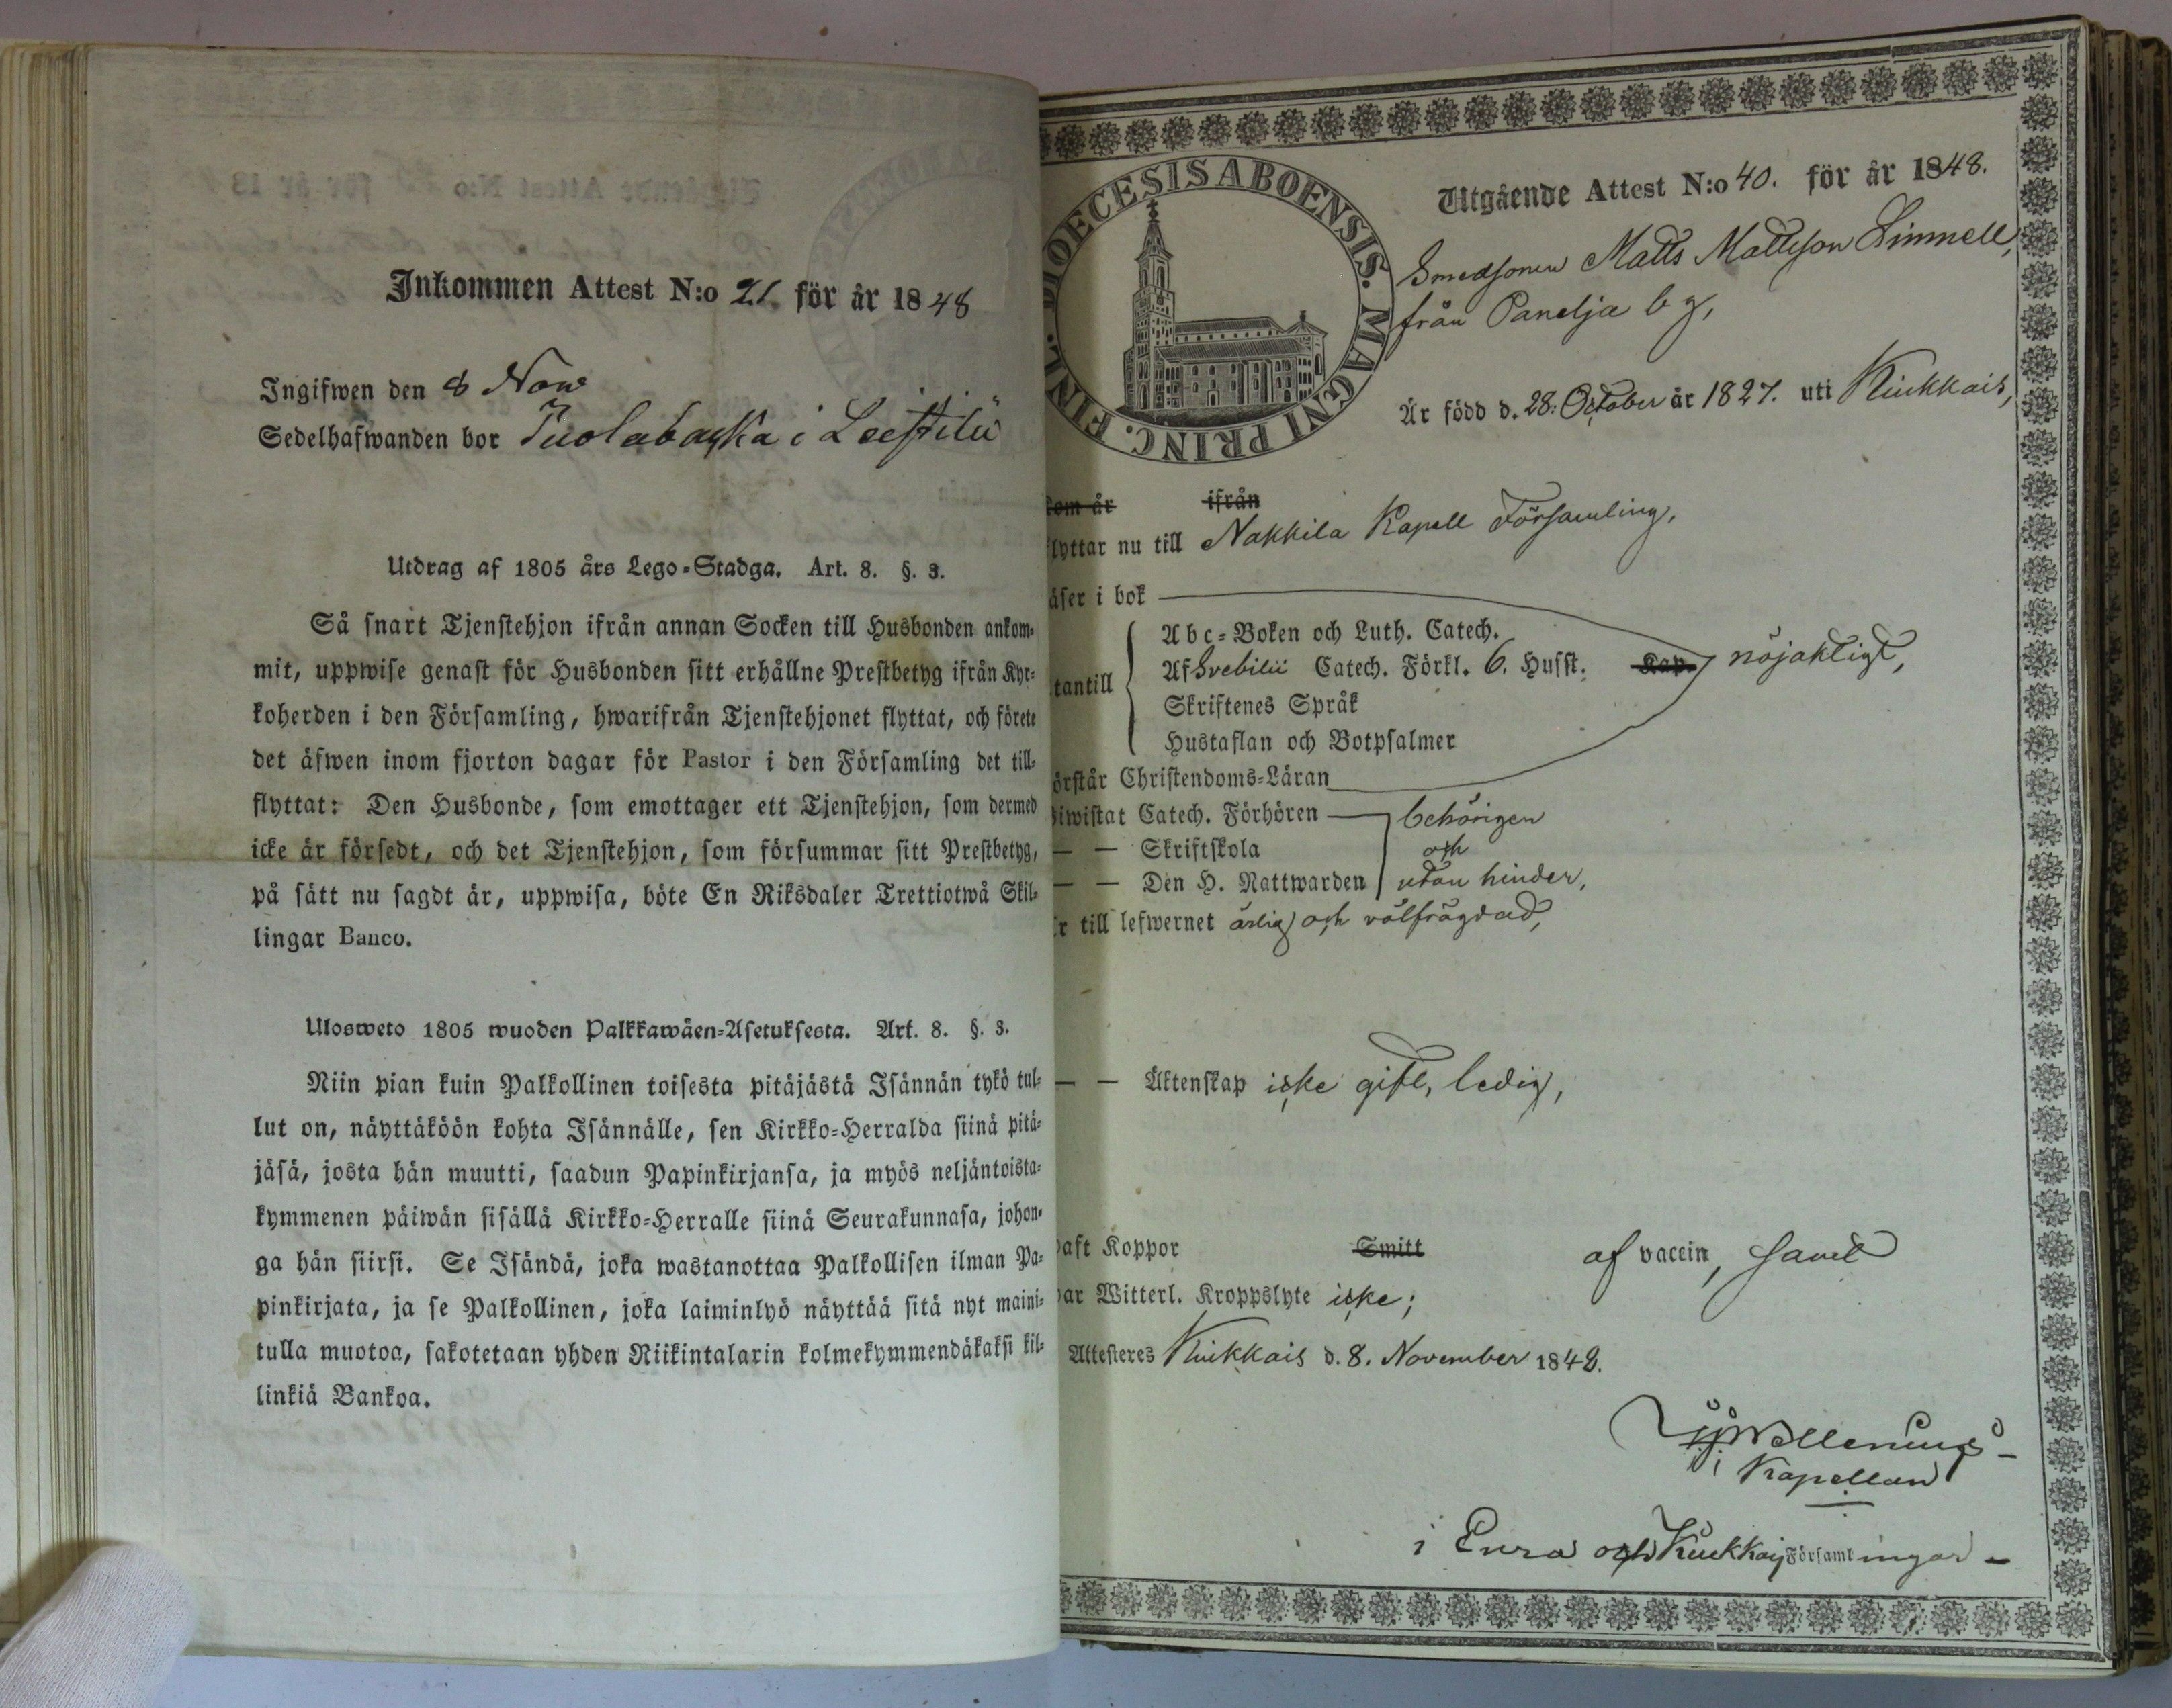 Inkommen Attest N:o 21. för år 1848
Ingifwen den 8 Now
Sedelhafwanden bor i Leistilä
Utdrag af 1805 års Lego-Stadga. Art. 8. §. 3.
Så snart Tjenstehjon ifrån annan Socken till Husbonden ankom-
mit, uppwise genast för Husbonden sitt erhållne Prestbetyg ifrån Kyr-
koherden i den Församling, hwarifrån Tjenstehjonet flyttat, och förete
det äfwen inom fjorton dagar för Pastor i den Församling det till-
flyttat: Den Husbonde, som emottager ett Tjenstehjon, som dermed
icke är försedt, och det Tjenstehjon, som försummar sitt Prestbetyg,
på sätt nu sagdt är, uppwisa, böte En Riksdaler Trettiotwå Skil-
lingar Banco.
Ulosweto 1805 wuoden Palkkawäen-Asetuksesta. Art. 8. §. 3.
Niin pian kuin Palkollinen toisesta pitäjästä Isännän tykö tul-
lut on, näyttäköön kohta Isännälle, sen Kirkko-Herralda siinä pitä-
jäsä, josta hän muutti, saadun Papinkirjansa, ja myös neljäntoista-
kymmenen päiwän sisällä Kirkko-Herralle siinä Seurakunnasa, johon-
ga hän siirsi. Se Isändä, joka wastanottaa Palkollisen ilman Pa-
pinkirjata, ja se Palkollinen, joka laiminlyö näyttää sitä nyt maini-
tulla muotoa, sakotetaan yhden Riikintalarin kolmekymmendäkaksi kil-
linkiä Bankoa.
DIOECESIS ABOENSIS. MAGNI PRINC. FINL.
Utgående Attest N:o 40. för år 1848.
Smedsonen Matts Mattsson Linnell,
från Panelja by,
Är född d. 28: October år 1827. uti Kiukkais,
kom år ifrån
flyttar nu till Nakkila Kapell Församling,
läser i bok
Abc-Boken och Luth. Catech.
utantill Af Svebilii Catech. Förkl. 6. Husst. Kap. nöjaktigt,
Skriftenes Språk
Hustaflan och Botpsalmer
förstår Christendoms-Läran
biwistat Catech. Förhören behörigen
— — Skriftskola och
— — Den H. Nattwarden utan hinder,
Är till lefwernet ärlig och välfrägdad,
— — Äktenskap icke gift, ledig,
haft Koppor Smitt af vaccin, samt
har Witterl. Kroppslyte icke;
Attesteres Kiukkais d. 8. November 1848.
Kapellan
i Eura och Kiukkais Församlingar –